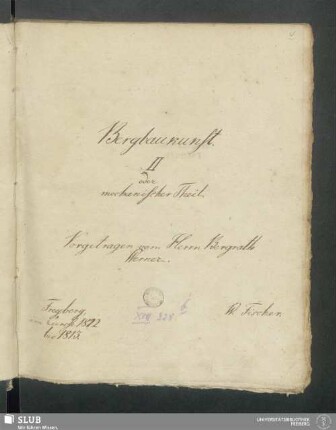 Bergbaukunst.
II
oder
mechanischer Theil.
Vorgetragen vom Herrn Bergrath
Werner.
Freyberg
1812
bis 1813.
XVII 328
SLUB
Wir führen Wissen.
UNIVERSITÄTSBIBLIOTHEK
FREIBERG